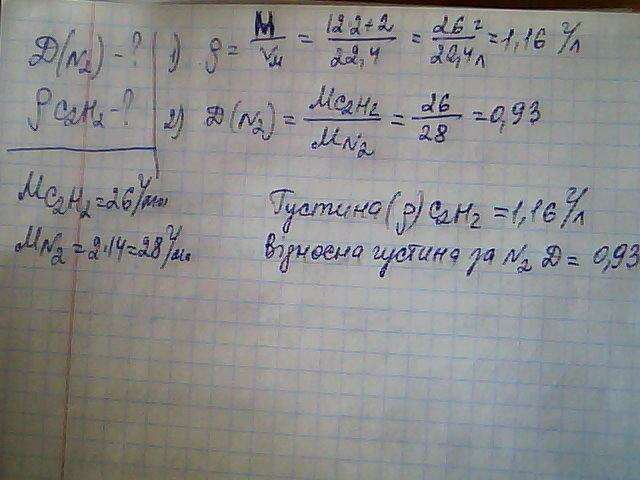 Д(N₂) - ?
ρ C₂H₂ - ?
M C₂H₂ = 26 г/моль
M N₂ = 2·14 = 28 г/моль
1) ρ = M/Vм = (12·2+2)/22,4 = 26 г/22,4 л = 1,16 г/л
2) Д(N₂) = M C₂H₂/M N₂ = 26/28 = 0,93
Густина (ρ) C₂H₂ = 1,16 г/л
відносна густина за N₂ Д = 0,93